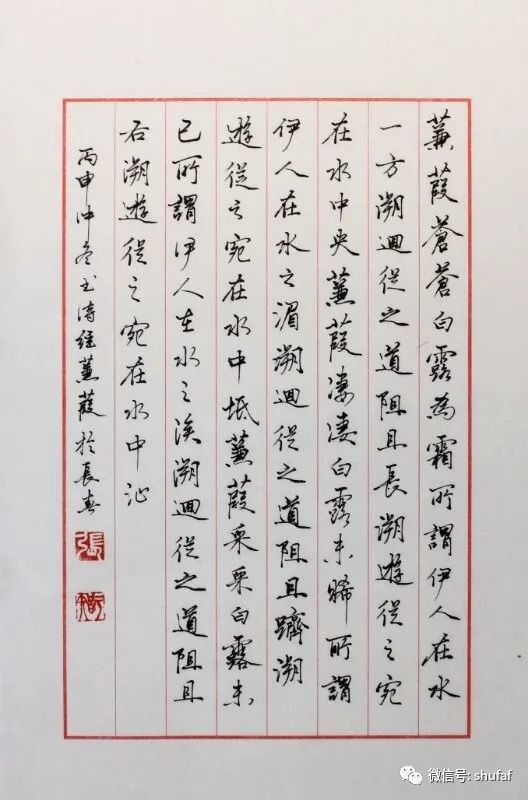 蒹葭蒼蒼白露為霜所謂伊人在水
一方溯迴從之道阻且長溯遊從之宛
在水中央蒹葭淒淒白露未晞所謂
伊人在水之湄溯迴從之道阻且躋溯
遊從之宛在水中坻蒹葭采采白露未
已所謂伊人在水之涘溯迴從之道阻且
右溯遊從之宛在水中沚
丙申仲冬書詩經蒹葭於長春
張
微信号: shufaf